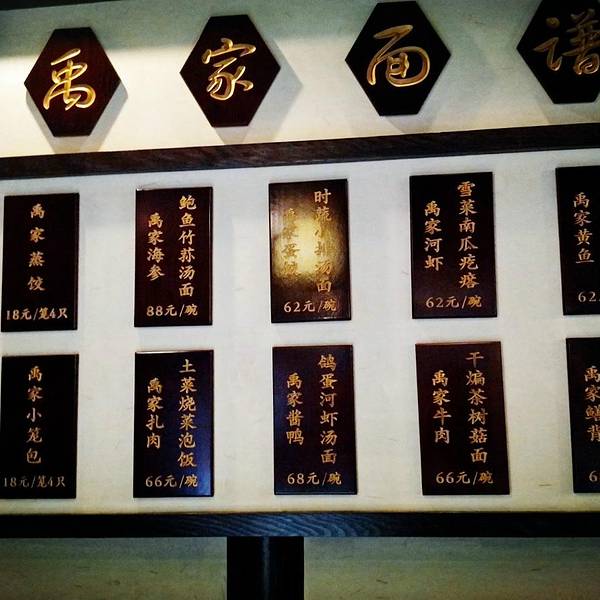 禹家面谱
禹家蒸饺
18元/笼4只
鲍鱼竹荪汤面
禹家海参
88元/碗
时蔬小排汤面
禹家蛋饺
62元/碗
雪菜南瓜疙瘩
禹家河虾
62元/碗
禹家黄鱼
62
禹家小笼包
18元/笼4只
土菜烧菜泡饭
禹家扎肉
66元/碗
鸽蛋河虾汤面
禹家酱鸭
68元/碗
干煸茶树菇面
禹家牛肉
66元/碗
禹家鳝背
6